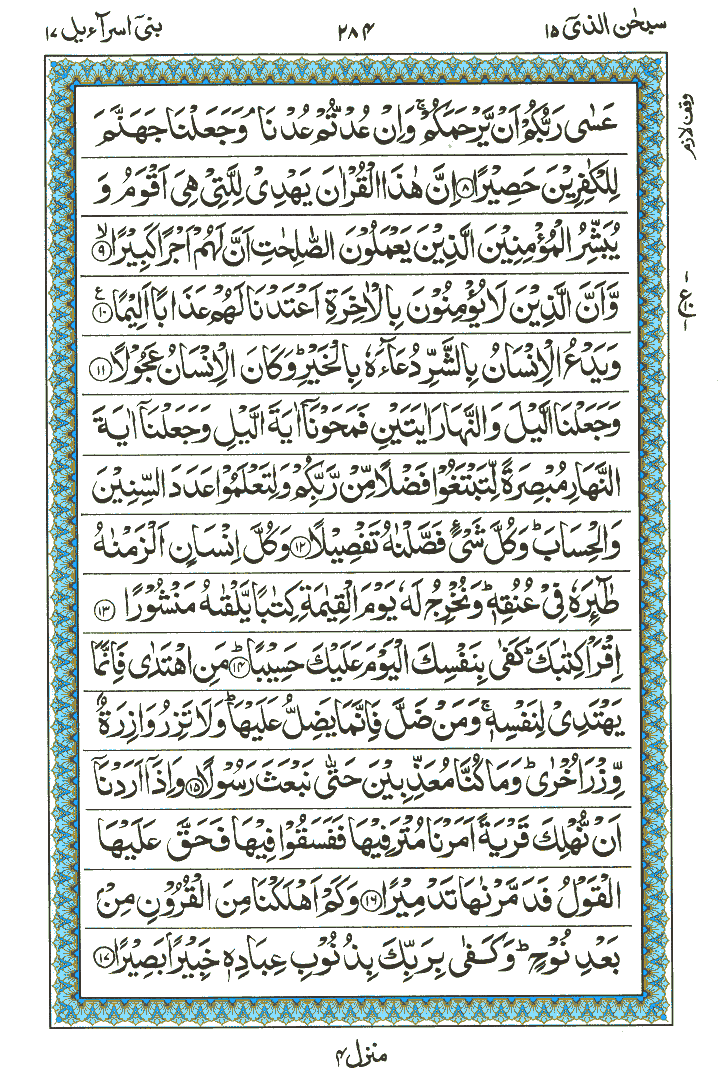 سبحٰن الذیٓ ۱۵ ۲۸۴ بنیٓ اسرآءیل ۱۷
عَسٰی رَبُّكُمْ اَنْ یَّرْحَمَكُمْ ۚ وَاِنْ عُدْتُّمْ عُدْنَا ۘ وَجَعَلْنَا جَهَنَّمَ
وقف لازم
لِلْكٰفِرِیْنَ حَصِیْرًا ۝۸ اِنَّ هٰذَا الْقُرْاٰنَ یَهْدِیْ لِلَّتِیْ هِیَ اَقْوَمُ وَ
یُبَشِّرُ الْمُؤْمِنِیْنَ الَّذِیْنَ یَعْمَلُوْنَ الصّٰلِحٰتِ اَنَّ لَهُمْ اَجْرًا كَبِیْرًا ۝۹ۙ
وَّاَنَّ الَّذِیْنَ لَا یُؤْمِنُوْنَ بِالْاٰخِرَةِ اَعْتَدْنَا لَهُمْ عَذَابًا اَلِیْمًا ۝۱۰ع
ع
وَیَدْعُ الْاِنْسَانُ بِالشَّرِّ دُعَآءَهٗ بِالْخَیْرِ ؕ وَكَانَ الْاِنْسَانُ عَجُوْلًا ۝۱۱
وَجَعَلْنَا الَّیْلَ وَالنَّهَارَ اٰیَتَیْنِ فَمَحَوْنَاۤ اٰیَةَ الَّیْلِ وَجَعَلْنَاۤ اٰیَةَ
النَّهَارِ مُبْصِرَةً لِّتَبْتَغُوْا فَضْلًا مِّنْ رَّبِّكُمْ وَلِتَعْلَمُوْا عَدَدَ السِّنِیْنَ
وَالْحِسَابَ ؕ وَكُلَّ شَیْءٍ فَصَّلْنٰهُ تَفْصِیْلًا ۝۱۲ وَكُلَّ اِنْسَانٍ اَلْزَمْنٰهُ
طٰٓئِرَهٗ فِیْ عُنُقِهٖ ؕ وَنُخْرِجُ لَهٗ یَوْمَ الْقِیٰمَةِ كِتٰبًا یَّلْقٰىهُ مَنْشُوْرًا ۝۱۳
اِقْرَاْ كِتٰبَكَ ؕ كَفٰی بِنَفْسِكَ الْیَوْمَ عَلَیْكَ حَسِیْبًا ۝۱۴ؕ مَنِ اهْتَدٰی فَاِنَّمَا
یَهْتَدِیْ لِنَفْسِهٖ ۚ وَمَنْ ضَلَّ فَاِنَّمَا یَضِلُّ عَلَیْهَا ؕ وَلَا تَزِرُ وَازِرَةٌ
وِّزْرَ اُخْرٰی ؕ وَمَا كُنَّا مُعَذِّبِیْنَ حَتّٰی نَبْعَثَ رَسُوْلًا ۝۱۵ وَاِذَاۤ اَرَدْنَاۤ
اَنْ نُّهْلِكَ قَرْیَةً اَمَرْنَا مُتْرَفِیْهَا فَفَسَقُوْا فِیْهَا فَحَقَّ عَلَیْهَا
الْقَوْلُ فَدَمَّرْنٰهَا تَدْمِیْرًا ۝۱۶ وَكَمْ اَهْلَكْنَا مِنَ الْقُرُوْنِ مِنْۢ
بَعْدِ نُوْحٍ ؕ وَكَفٰی بِرَبِّكَ بِذُنُوْبِ عِبَادِهٖ خَبِیْرًۢا بَصِیْرًا ۝۱۷
منزل ۴